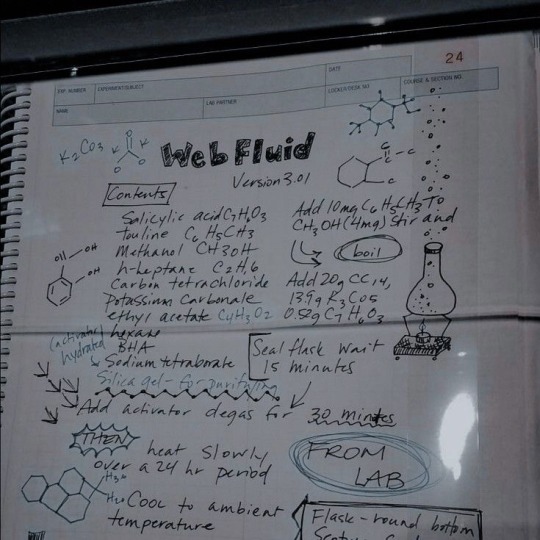 24
EXP. NUMBER
EXPERIMENT/SUBJECT
DATE
NAME
LAB PARTNER
LOCKER/DESK NO.
COURSE & SECTION NO.
K2CO3
K
K
O
O
O
Web Fluid
Version 3.01
Contents
Salicylic acid C7H6O3
touline C6H5CH3
Methanol CH3OH
n-heptane C2H,6
Carbon tetrachloride
Potassium Carbonate
ethyl acetate C4H8O2
hexane
BHA
Sodium tetraborate
(activator)
hydrated
Silica gel - for purifying
OH
OH
Add 10mg C6H5CH3 To
CH3OH (4mg) Stir and
boil
Add 20g CCl4,
13.9g K2CO3
0.52g C7H6O3
Seal flask wait
15 minutes
Add activator degas for 30 mintes
THEN
heat slowly
over a 24 hr period
FROM
LAB
Cool to ambient
temperature
Flask - round bottom